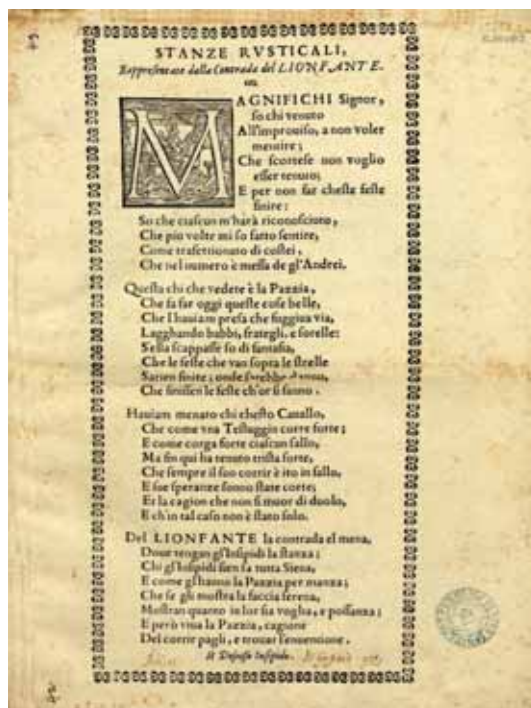 STANZE RVSTICALI,
Rappresentate dalla Contrada del LIONFANTE.
MAGNIFICHI Signor,
so chi venuto
All'improuiso, a non voler
mentire;
Che scortese non voglio
esser tenuto;
E per non far cheste feste
finire:
So che ciascun m'harà riconosciuto,
Che più volte mi so fatto sentire,
Come trafettionato di costei,
Che nel numero è messa de gl'Andrei.
Questa chi che vedete è la Pazzia,
Che fa far oggi queste cose belle,
Che l hauiam presa che fuggiua via,
Lagghando babbi, frategli, e sorelle:
Sella scappasse so di fantasia,
Che le feste che van sopra le strelle
Sarien finite; onde sarebbe
Che finissen le feste ch'or si fanno.
Hauiam menato chi chesto Cauallo,
Che come vna Testuggin corre forte;
E come corga forte ciascun sallo,
Ma fin qui ha tenuto trista sorte,
Che sempre il suo corrir è ito in fallo,
E sue speranze sonno state corte;
Et la cagion che non si muor di duolo,
E ch'in tal caso non è stato solo.
Del LIONFANTE la contrada el mena,
Doue tengan gl'Insipidi la stanza;
Chi gl'Insipidi sien sa tutta Siena,
E come gl'hanno la Pazzia per manza;
Che se gli mostra la faccia serena,
Mostran quanto in lor sia voglia, e possanza;
E però viua la Pazzia, cagione
Del corrir pagli, e trouar l'inuentione.
Il Insipido.